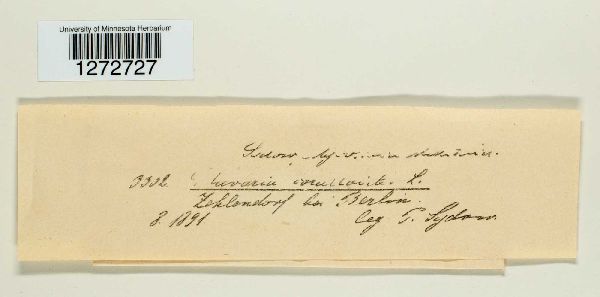 University of Minnesota Herbarium
1272727
Sydow,
3352 Clavaria L.
Zehlendorf bei Berlin.
8. 1891 leg P. Sydow.